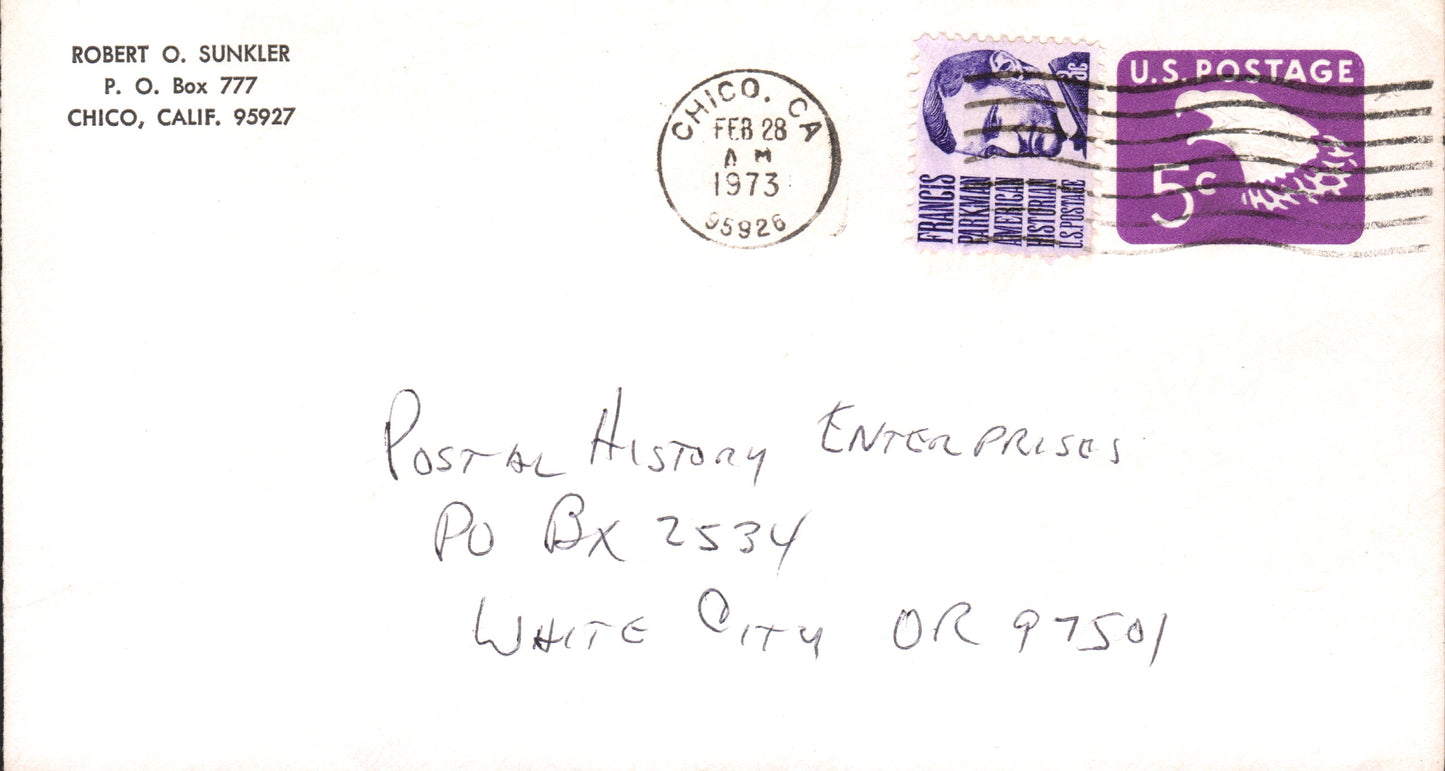 ROBERT O. SUNKLER
P. O. Box 777
CHICO, CALIF. 95927
CHICO, CA
FEB 28
AM
1973
95926
3c
FRANCIS
PARKMAN
AMERICAN
HISTORIAN
U.S. POSTAGE
U.S. POSTAGE
5c
POSTAL HISTORY ENTERPRISES
PO BX 2534
WHITE CITY OR 97501